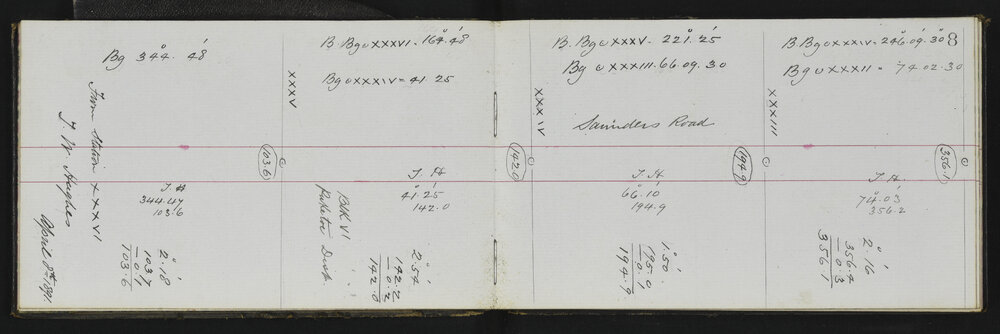 Bg 344° 48'
From Station XXXVI
T. W. Hughes
April 8th 1891.
T. H
344.47
103.6
2° 18'
103.7
— 0.1
103.6
103.6
XXXV
B. Bg ∪ XXXVI = 164° 48'
Bg ∪ XXXIV = 41. 25
T H
41° 25'
142.0
Blk VI
Puketoi Dist.
2° 54'
142.2
— 0.2
142.0
142.0
XXXIV
B. Bg ∪ XXXV = 221° 25'
Bg ∪ XXXIII. 66. 09. 30
Saunders Road
T. H
66° 10'
194.9
1° 50'
195.0
— 0.1
194.9
194.9
XXXIII
8
B. Bg ∪ XXXIV = 246° 09' 30
Bg ∪ XXXII = 74. 02. 30
T. H.
74° 03'
356.2
2° 16'
356.4
— 0.3
356.1
356.1